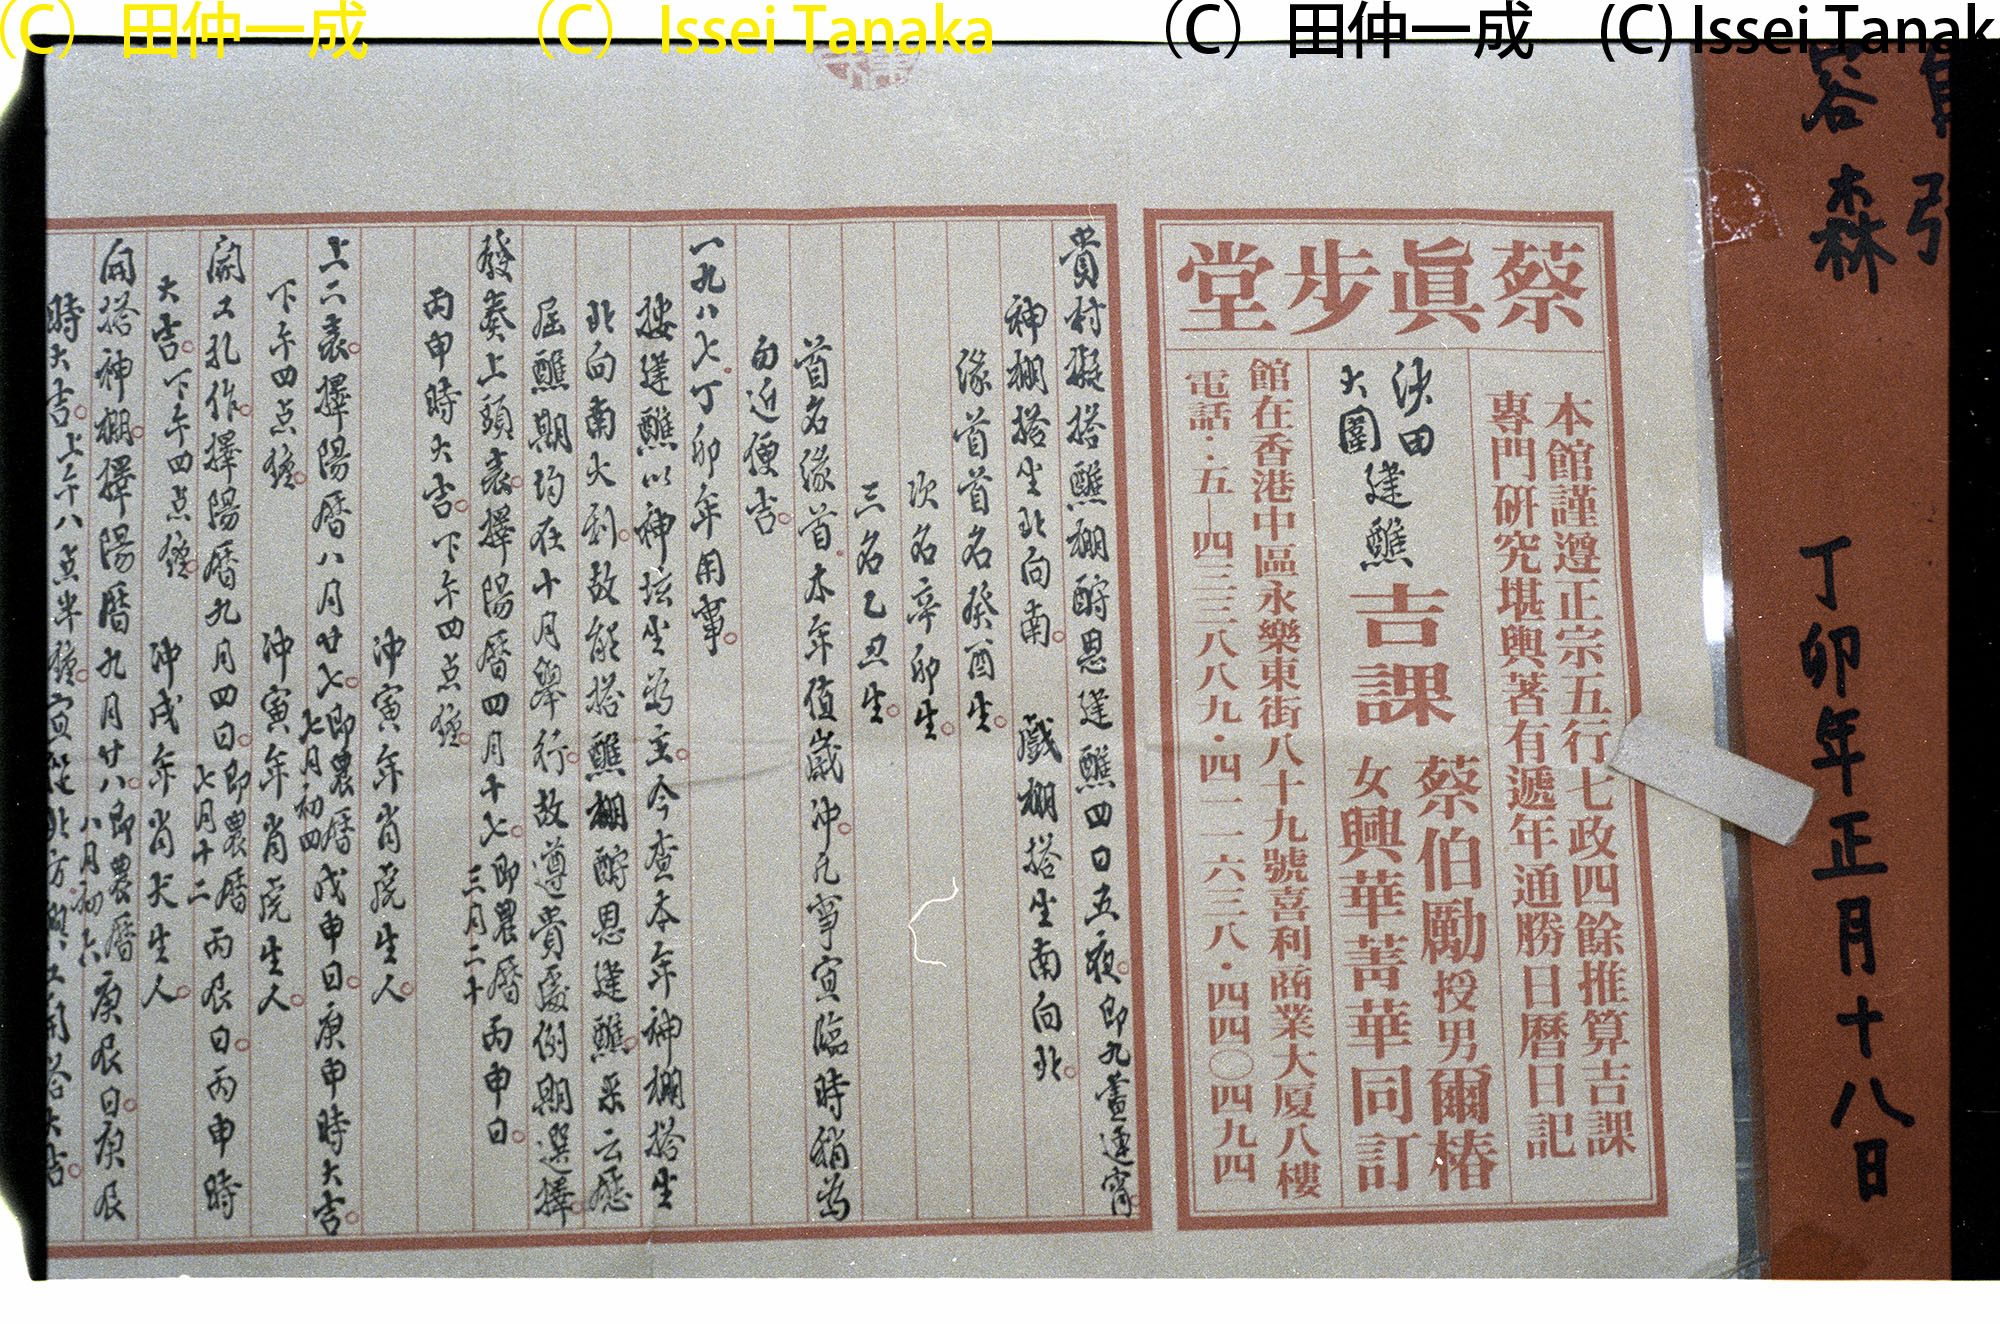 (C) 田仲一成 (C) Issei Tanaka (C) 田仲一成 (C) Issei Tanak
容森
丁卯年正月十八日
蔡眞步堂
本館謹遵正宗五行七政四餘推算吉課
專門研究堪輿著有遞年通勝日曆日記
泱田
大圍
建醮
吉課
蔡伯勵授男爾椿
女興華菁華同訂
館在香港中區永樂東街八十九號喜利商業大厦八樓
電話：五—四三三八八九．四一一六三八．四四〇四九四
貴村擬搭醮棚酧恩建醮四日五夜即九晝連宵
神棚搭坐北向南 戲棚搭坐南向北
緣首首名癸酉生
次名辛卯生
三名乙丑生
首名緣首本年值歲沖凡事宜臨時稍為
勿近便吉
一九八七丁卯年用事
搂建醮以神坛坐為主今查本年神棚搭坐
北向南大利故能搭醮棚酧恩建醮来云懸
屈醮期均在十月舉行故遵貴處例期選擇
發奏上頭表擇陽曆四月十七即農曆三月二十丙申日
丙申時大吉下午四点鐘
沖寅年肖虎生人
上二表擇陽曆八月廿七即農曆七月初四戊申日庚申時大吉
下午四点鐘 沖寅年肖虎生人
開工扎作擇陽曆九月四日即農曆七月十二丙辰日丙申時
大吉下午四点鐘 沖戌年肖犬生人
開搭神棚擇陽曆九月廿八即農曆八月初六庚辰日庚辰
時大吉上午八点半鐘宜從北方興工開搭大吉